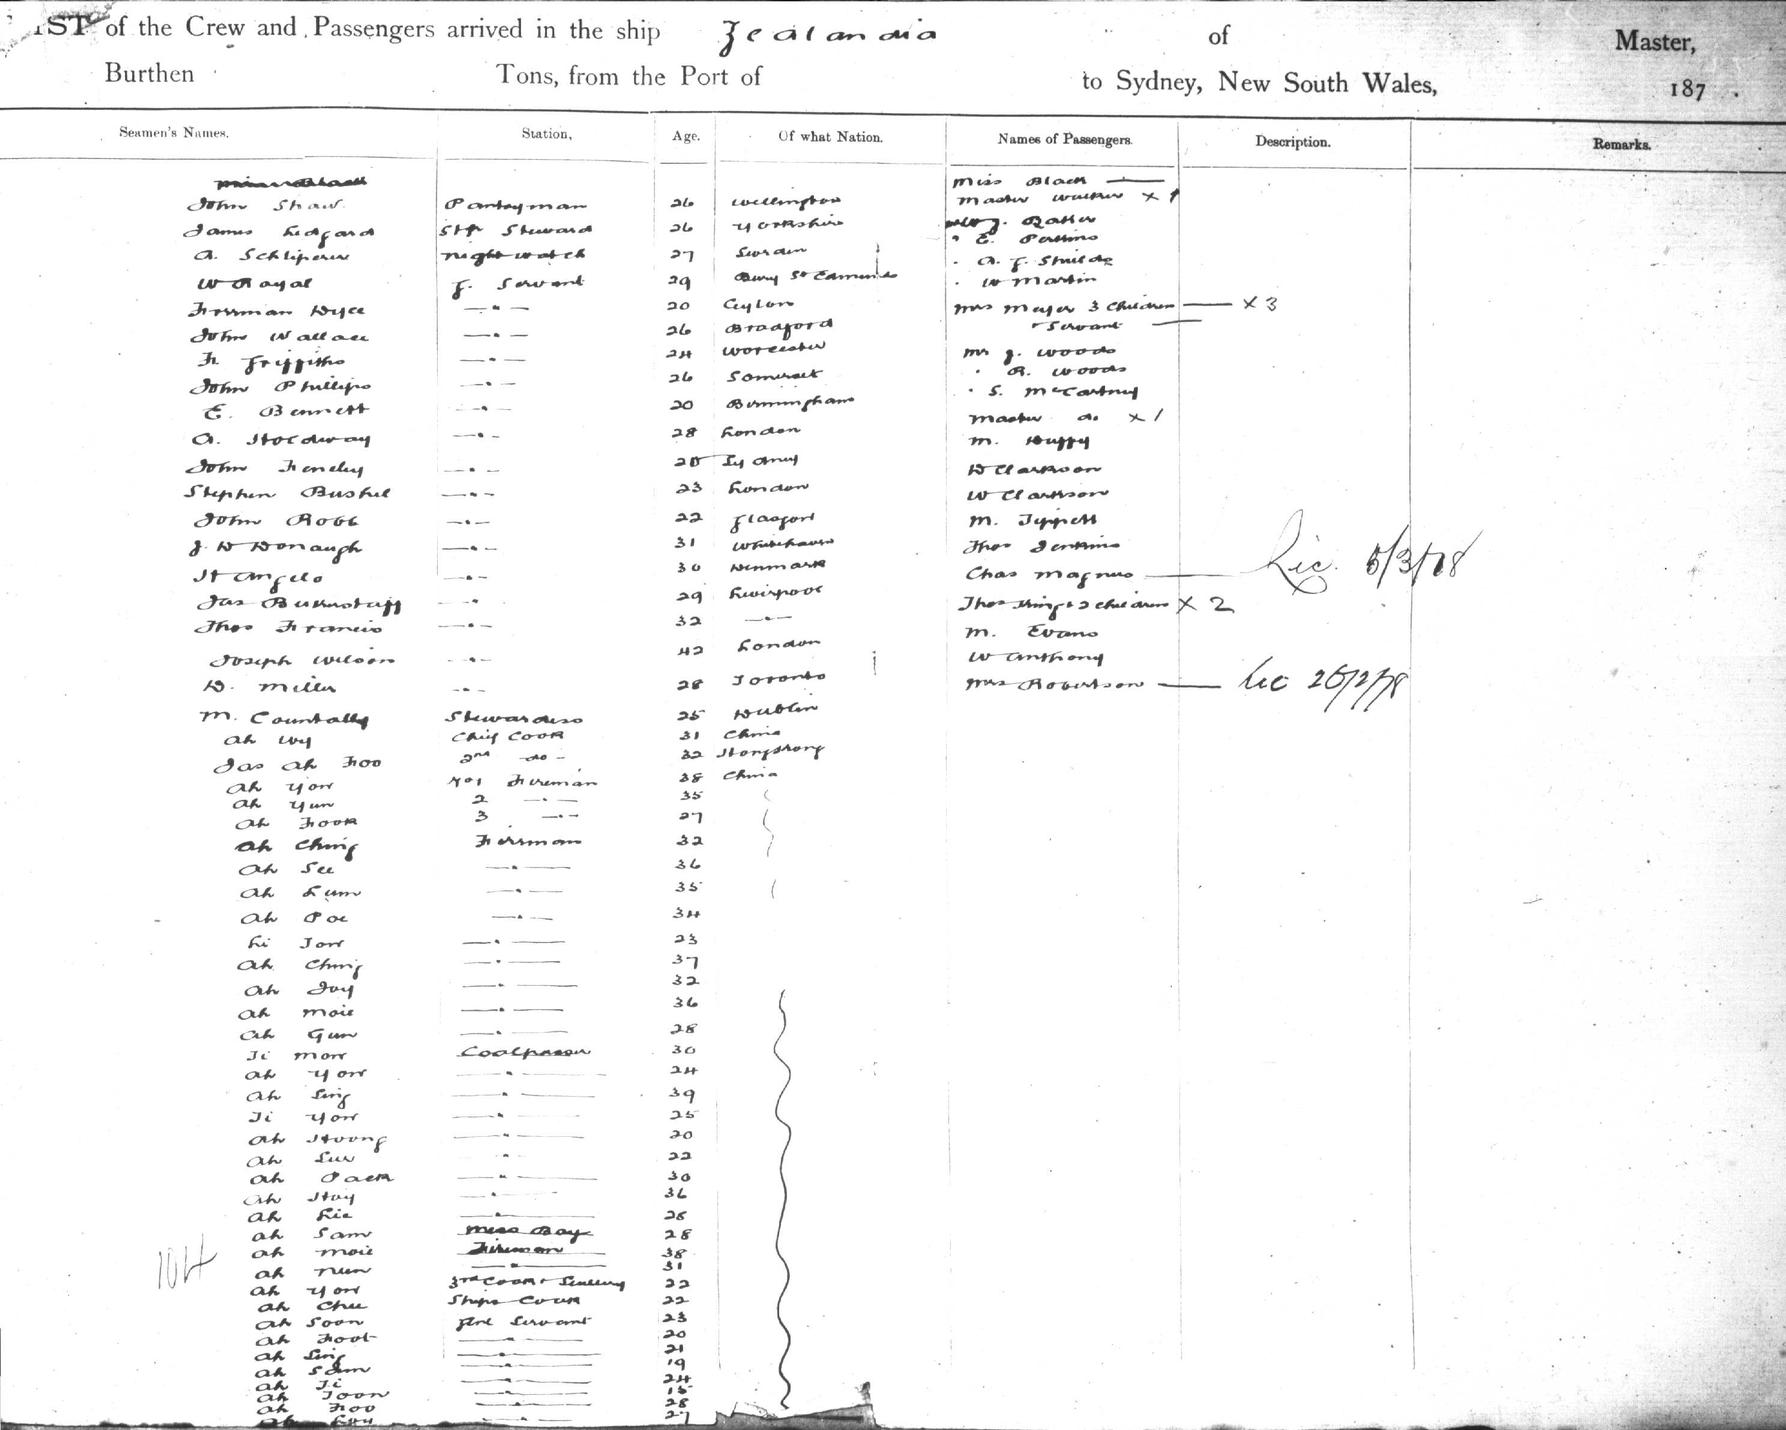 IST of the Crew and Passengers arrived in the ship Zealandia of Master,
Burthen Tons, from the Port of to Sydney, New South Wales, 187 .
Seamen's Names. Station, Age. Of what Nation. Names of Passengers. Description. Remarks.
Miss Black
John Shaw Pantryman 26 Wellington Master Walker x 1
James Ledgard Str Steward 26 Yorkshire J. Barker
A. Night watch 27 Sweden " E. Perkins
" A. J. Shields
W Royal J. Servant 29 Bury St Edmunds " W Martin
Dyce —"— 20 Ceylon Mrs Meyer 3 Children — x 3
John Wallace —"— 26 Bradford + Servant —
F. Griffiths —"— 24 Worcester Mr J. Woods
John Phillips —"— 26 Somerset " R. Woods
" S. McCartney
E. Bennett —"— 20 Birmingham Master do x 1
A. Holdway —"— 28 London M. Duffy
John Fenely —"— 20 Sydney D Clarkson
Stephen Bushel —"— 23 London W Clarkson
John Robb —"— 22 Glasgow M. Tippett
J. D Donaugh —"— 31 Whitehaven Thos Jenkins
H Angelo —"— 30 Denmark Chas Magnus — Lic. 5/3/78
Jas Bickerstaff —"— 29 Liverpool Thos King + 2 children x 2
Thos Francis —"— 32 —"— M. Evans
Joseph Wilson —"— 42 London W Anthony
D. Miller —"— 28 Toronto Mrs Robertson — Lic 26/2/78
M. Countally Stewardess 25 Dublin
Ah Wy Chief Cook 31 China
Jas Ah Foo 2nd —do— 32 Hongkong
Ah Yow No 1 Fireman 38 China
Ah Yun 2 —"— 35
Ah Fook 3 —"— 27
Ah Ching Fireman 32
Ah See —"— 36
Ah Lum —"— 35
Ah Poe —"— 34
Li Tow —"— 23
Ah Ching —"— 37
Ah Joy —"— 32
Ah Moie —"— 36
Ah Gun —"— 28
Ti Mow Coalpasser 30
Ah Yow —"— 24
Ah Sing —"— 39
Ti Yow —"— 25
Ah Hoong —"— 20
Ah —"— 22
Ah Pack —"— 30
Ah Hoy —"— 36
Ah Lie —"— 28
Ah Sam Mess Boy 28
Ah Moie Fireman 38
104
Ah Nun —"— 31
Ah Yow 3rd Cook + 22
Ah Chee Ships Cook 22
Ah Soon Servant 23
Ah Foot —"— 20
Ah Sing —"— 21
Ah Sam —"— 19
Ah Ti —"— 24
Ah Toon —"— 15
Ah Foo —"— 28
Ah —"— 27